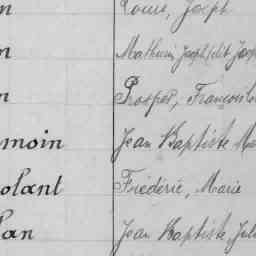 n Louis, Joseph
n Mathurin, Joseph dit
n Prosper, François
moin Jean Baptiste
olant Frédéric, Marie
lan Jean Baptiste,